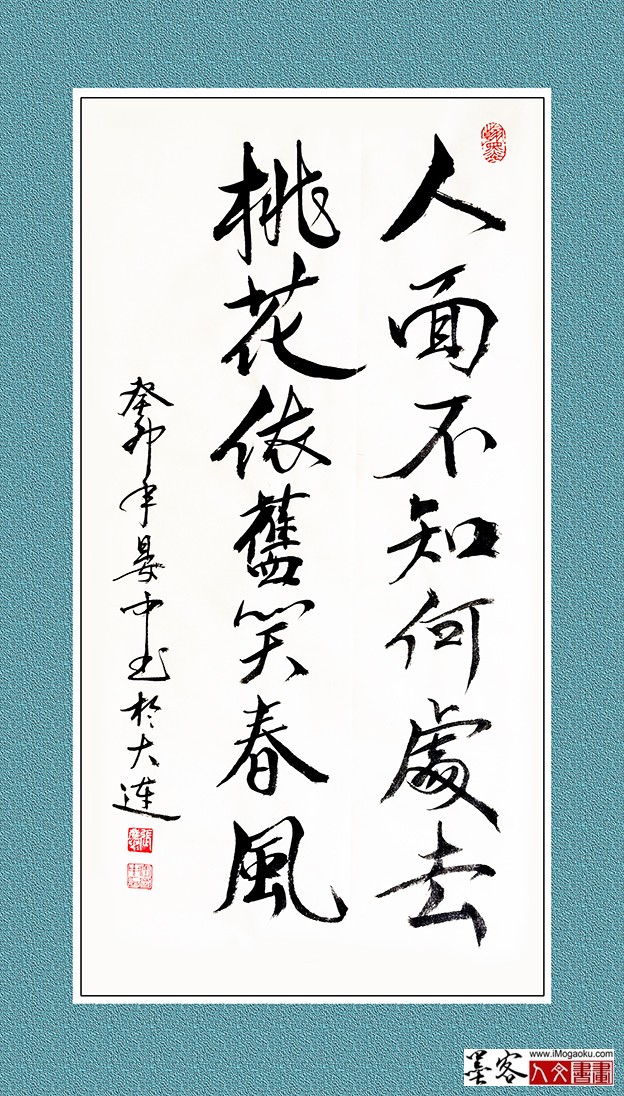 人面不知何處去
桃花依舊笑春風
癸卯年晏中书於大連
www.iMogaoku.com
墨客
人文書畫